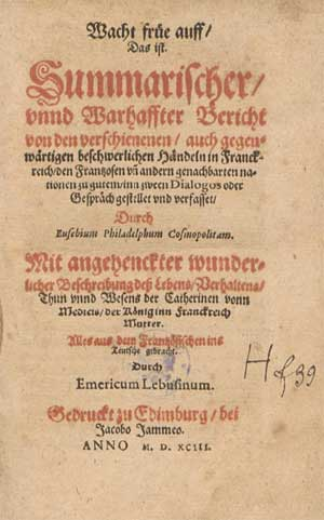 Wacht früe auff/
Das ist.
Summarischer/
vnnd Warhaffter Bericht
von den verschienenen/ auch gegen-
wärtigen beschwerlichen Händeln in Franck-
reich/den Frantzosen vñ andern genachbarten na-
tionen zu gutem/inn zween Dialogos oder
Gespräch gestellet vnd verfasset/
Durch
Eusebium Philadelphum Cosmopolitam.
Mit angehenckter wunder-
licher Beschreibung deß Lebens/Verhaltens/
Thun vnnd Wesens der Catherinen vonn
Medicis/der Königinn Franckreich
Mutter.
Alles aus dem Frantzösischen ins
Teutsche gebracht.
Durch
Emericum Lebusinum.
Gedruckt zu Edimburg/bei
Jacobo Jammeo.
ANNO M. D. XCIII.